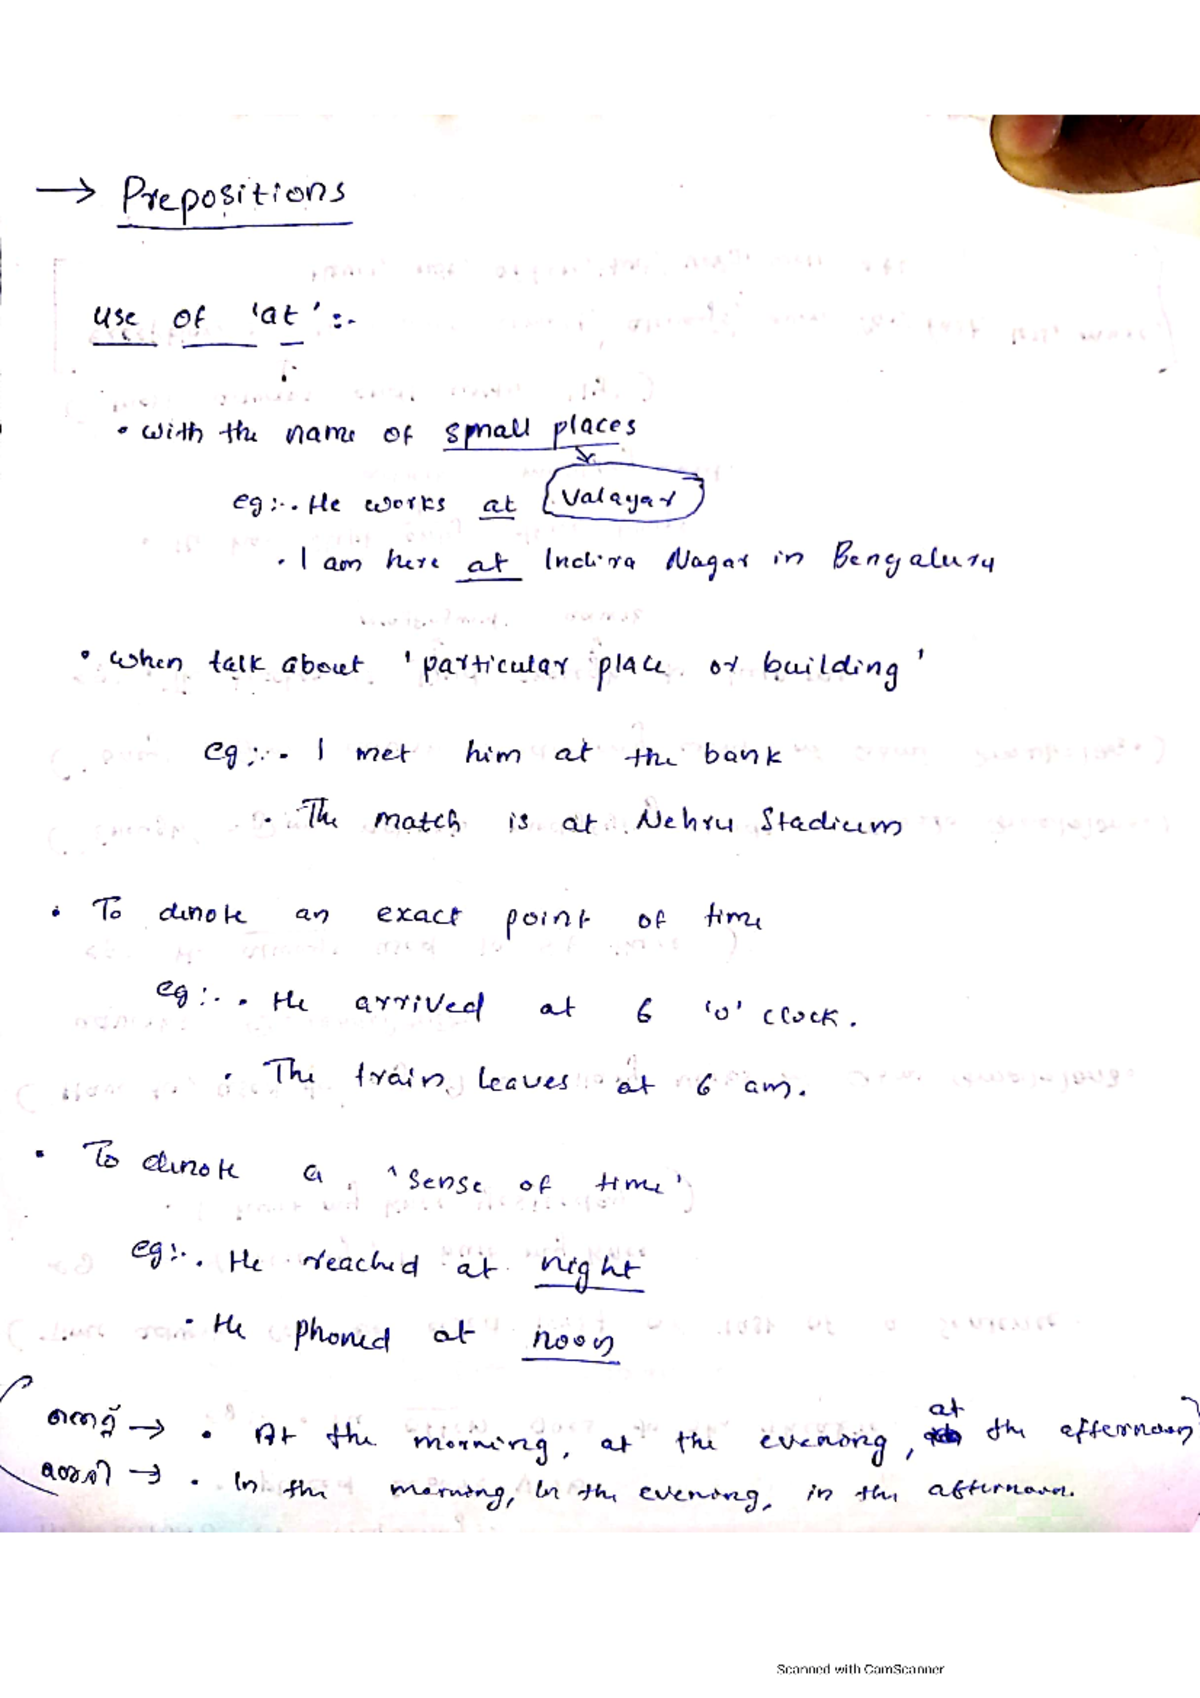 → Prepositions
use of 'at' :-
• with the name of small places
eg:- • He works at Valayar
• I am here at Indira Nagar in Bengaluru
• when talk about 'particular place or building'
eg:- • I met him at the bank
• The match is at Nehru Stadium
• To denote an exact point of time
eg:- • He arrived at 6 'o' clock.
• The train leaves at 6 am.
• To denote a 'sense of time'
eg:- • He reached at night
• He phoned at noon
→ • At the morning, at the evening, at the afternoon
→ • In the morning, In the evening, in the afternoon.
Scanned with CamScanner